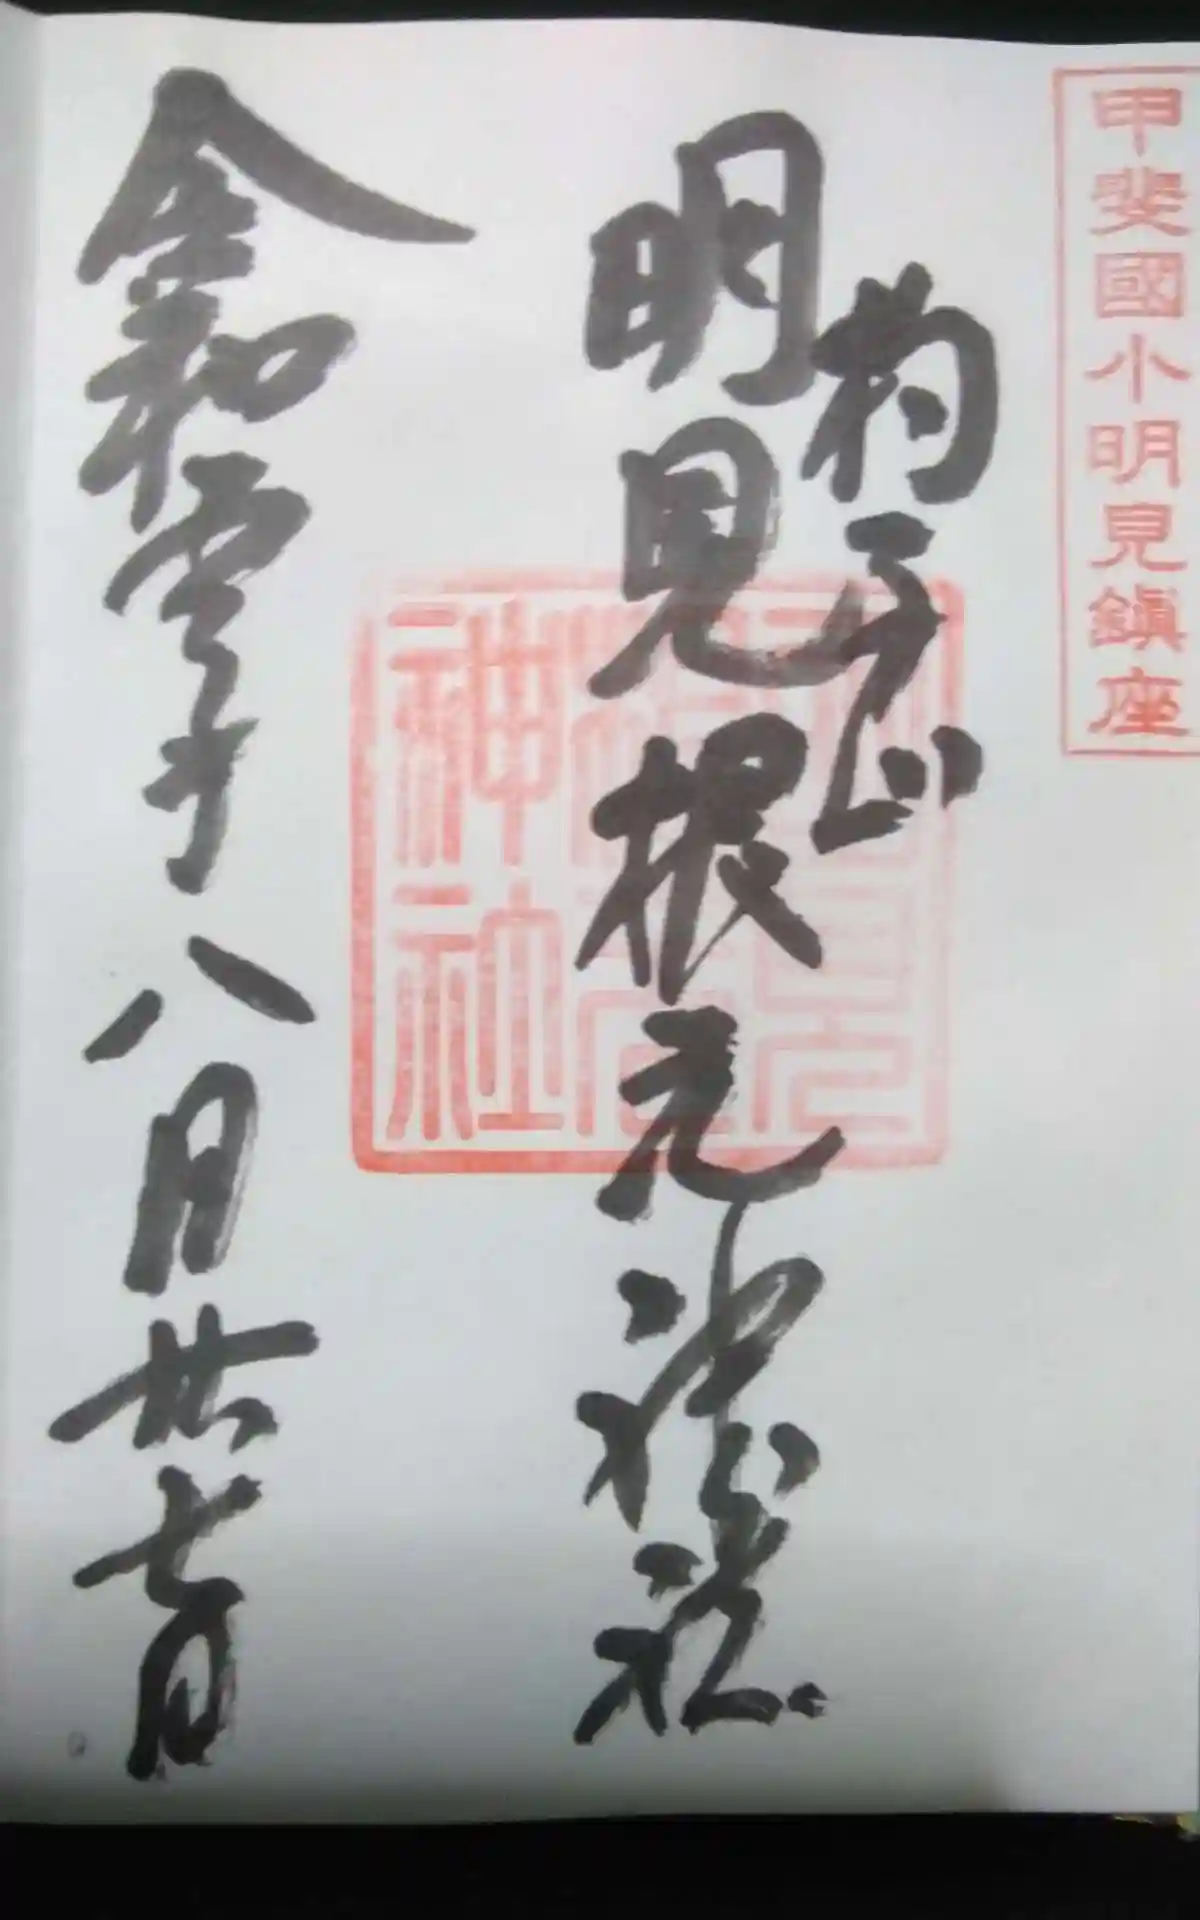 甲斐國小明見鎮座
杓子山
明見根元神社
令和 年八月廿七日
明見
根元
神社